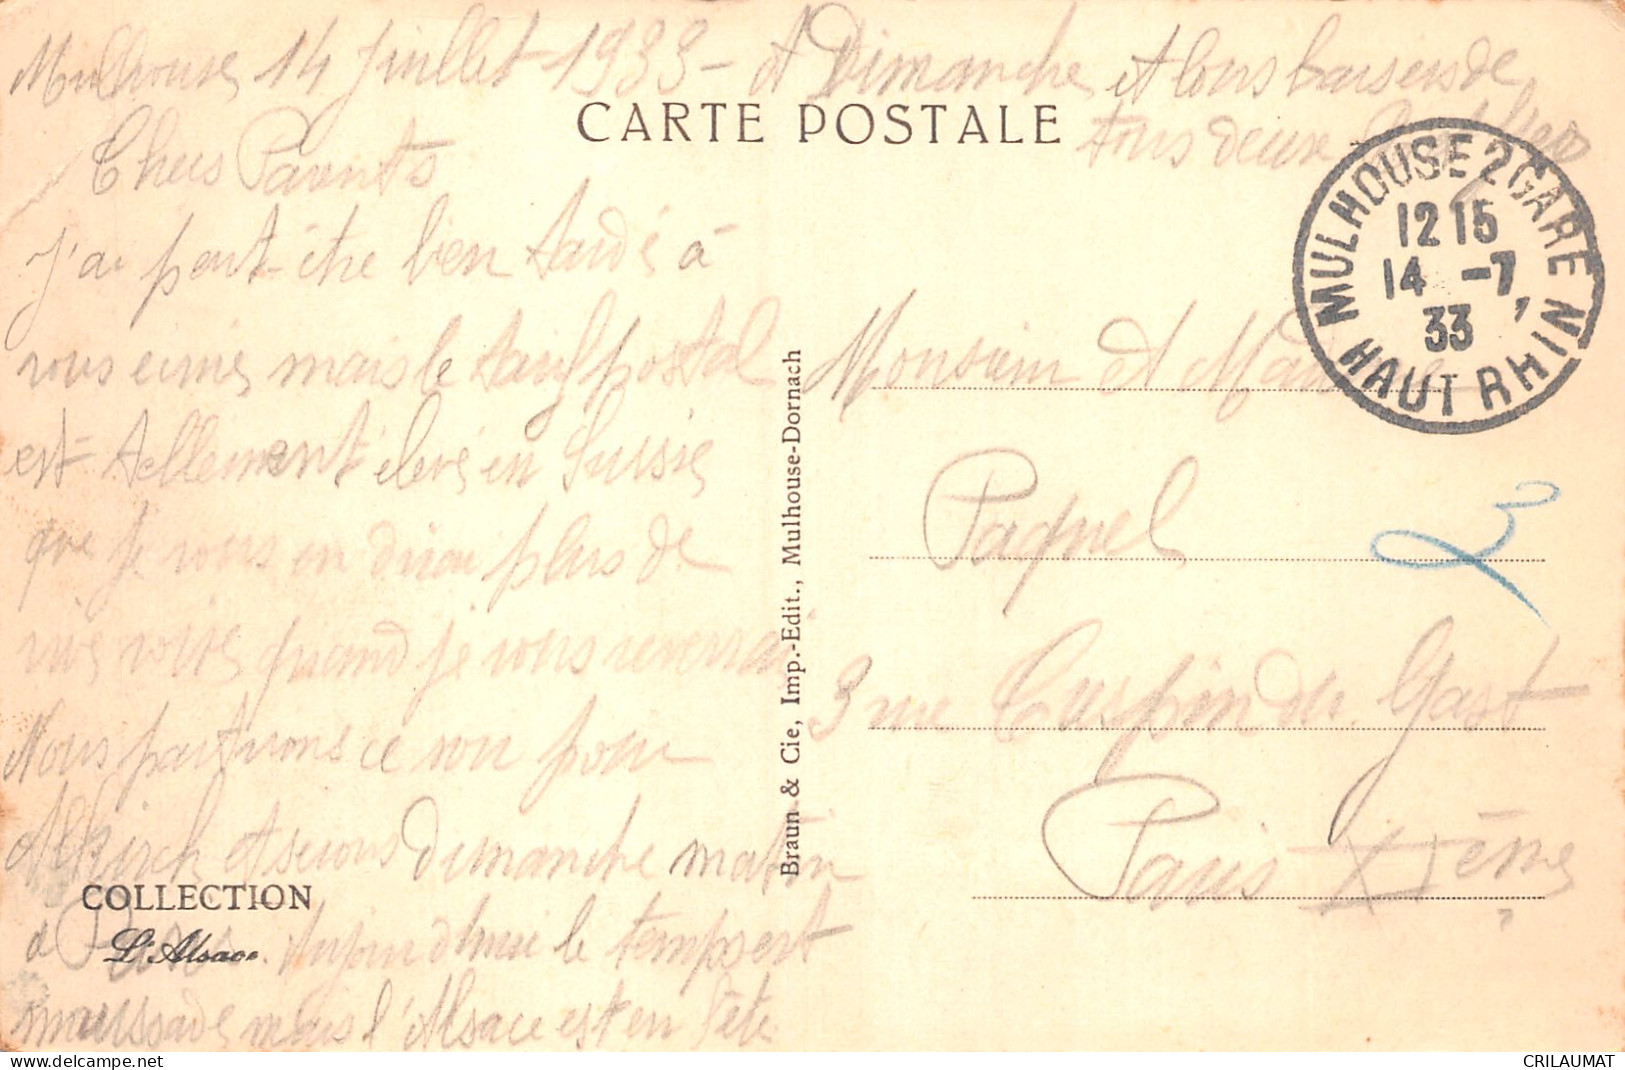 Mulhouse, 14 Juillet 1933 - A Dimanche et bons baisers de
tous deux
CARTE POSTALE
Chers Parents
J'ai peut-être bien tardé à
vous écrire, mais le tarif postal
est tellement élevé en Suisse
que je vous en dirai plus de
vive voix quand je vous reverrai
Nous partirons ce soir pour
Altkirch et serons dimanche matin
à Paris. Aujourd'hui le temps est
maussade, mais l'Alsace est en fête
COLLECTION
L'Alsace.
Braun & Cie, Imp.-Edit., Mulhouse-Dornach
MULHOUSE 2 GARE
12 15
14 -7
33
HAUT RHIN
Monsieur et Madame
Paquel
3 rue Crespin du Gast
Paris XIème
delcampe.net
CRILAUMAT